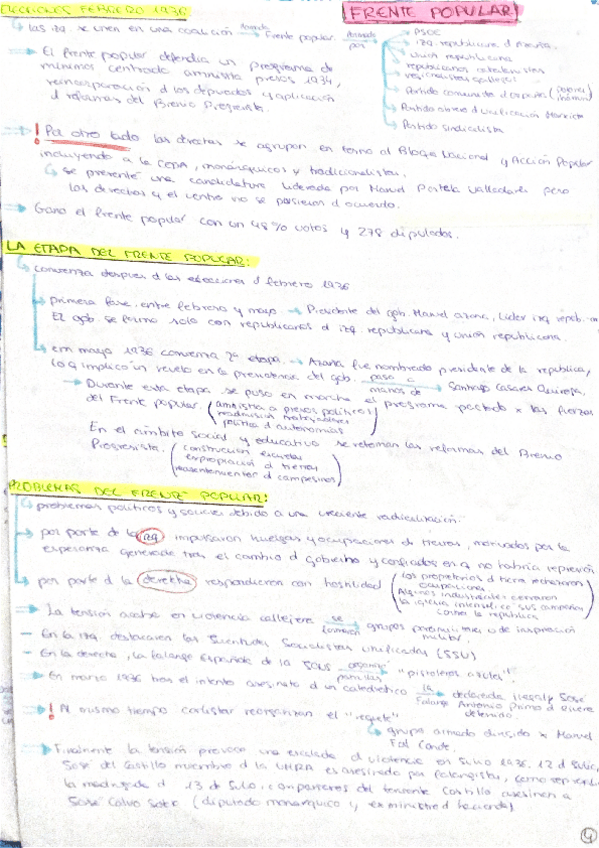 ELECCIONES FEBRERO 1936
FRENTE POPULAR
las izq se unen en una coalición llamada Frente popular. formada por
PSOE
izq. republicana d Azaña
Unión republicana
republicanos catalanistas
regionalistas gallegos
Partido comunista d españa
Partido obrero d Unificación Marxista
Partido sindicalista
El frente popular defendía un programa de
mínimos centrado amnistía presos 1934,
reincorporación d los depuados y aplicación
d reformas del Bienio Progresista.
! Por otro lado las derechas se agrupan en torno al Bloque Nacional y Acción Popular
incluyendo a la CEDA, monárquicos y tradicionalistas.
se presentó una candidatura liderada por Manuel Portela Valladares pero
las derechas y el centro no se pusieron d acuerdo.
Ganó el frente popular con un 48% votos y 278 diputados.
LA ETAPA DEL FRENTE POPULAR:
comienza despues d las elecciones d febrero 1936
primera fase. entre febrero y mayo → Presidente del gob. Manuel azaña, líder izq repub.
El gob. se formó solo con republicanos d izq. republicana y unión republicana.
em mayo 1936 comienza 2ª etapa. → Azaña fue nombrado presidente de la republica,
lo q implicó un revelo en la presidencia del gob. paso a manos de Santiago Casares Quiroga.
Durante esta etapa se puso en marcha el programa pactado x las fuerzas
del Frente popular. (amnistia a presos politicos
readmisión trabajadores
política d autonomías)
En el ámbito social y educativo se retoman las reformas del Bienio
Progresista. (construcción escuelas
expropiación d tierras
asentamientos d campesinos)
PROBLEMAS DEL FRENTE POPULAR:
problemas políticos y sociales debido a una creciente radicalización.
por parte de la izq impulsaron huelgas y ocupaciones de tierras, motivados por la
esperanza generada tras el cambio d gobierno y confiados en q no habría represión
por parte d la derecha respondieron con hostilidad (los propietarios d tierra rechazaron
ocupaciones.
Algunos industriales cerraron
la iglesia intensificó sus campañas
contra la república)
La tensión acabó en violencia callejera se formaron grupos paramilitares o de inspiración
militar.
- En la izq. destacaron las Juventudes Socialistas Unificadas (JSU)
- En la derecha, la falange Española de la JONS organizó "pistoleros azules".
En marzo 1936 tras el intento asesinato d un catedrático la Falange declarada ilegal y José
Antonio Primo d Rivera
detenido.
! Al mismo tiempo carlistas reorganizan el "requeté"
grupo armado dirigido x Manuel
Fal Conde.
Finalmente la tensión provocó una escalada d violencia en Julio 1936. 12 d Julio,
José del Castillo miembro d la UMRA es asesinado por falangistas, como represalia
la madrugada d 13 de Julio, compañeros del teniente Castillo asesinen a
José Calvo Sotelo (diputado monárquico y exministro d hacienda)
4